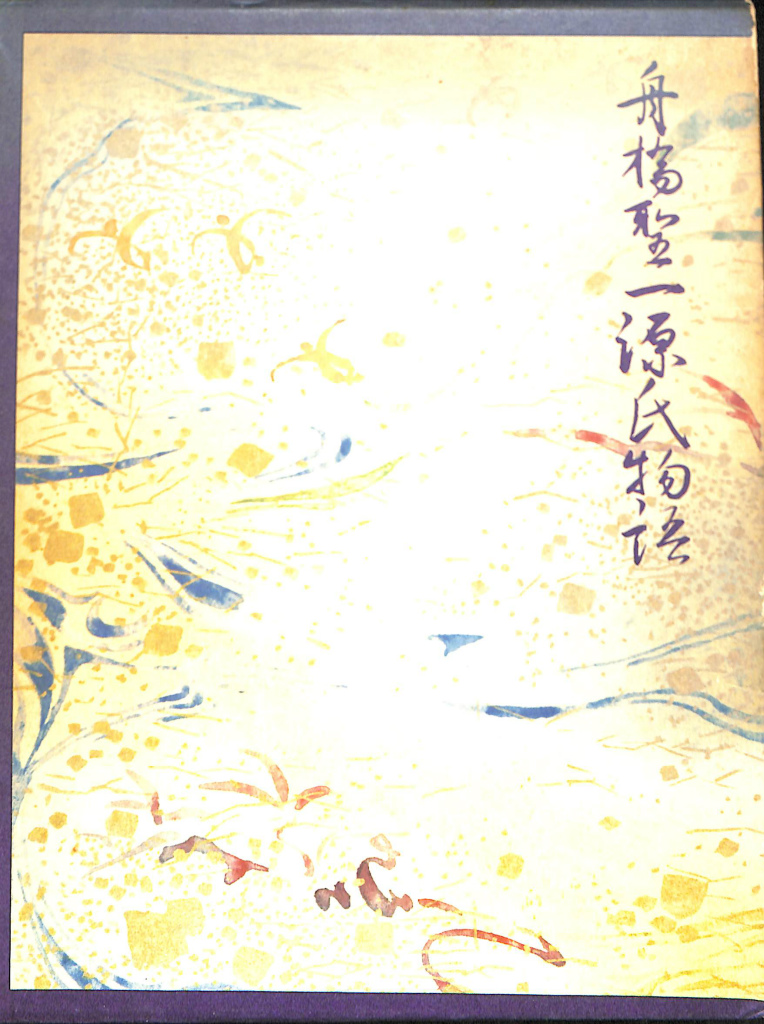 舟橋聖一源氏物語